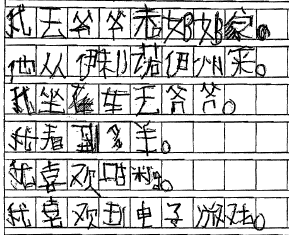 我去爷爷奶奶家。
他从伊利诺伊州来。
我坐车去爷爷。
我看到多羊。
我喜欢。
我喜欢电子游戏。